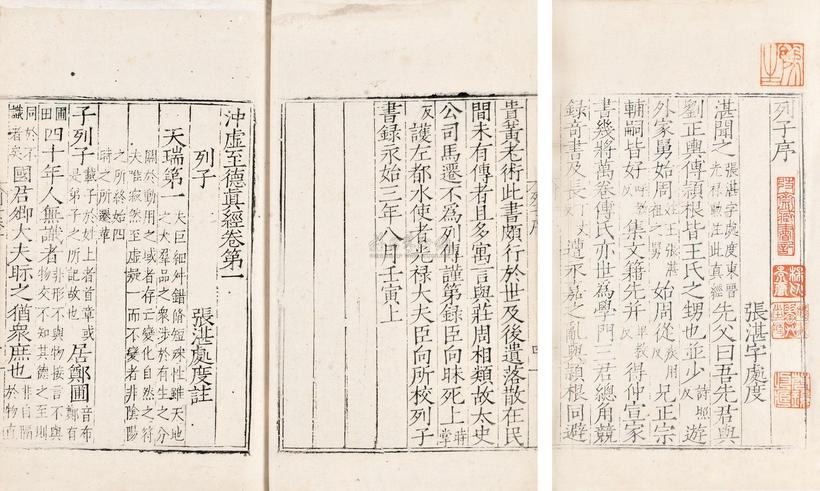 列子序
張湛字處度
湛聞之張湛字處度東晉光祿勳注此真經先父曰吾先君與
劉正輿傅頴根皆王氏之甥也並少詩照反遊
外家舅始周姓王張湛祖之舅始周從疾用反兄正宗
輔嗣皆好呼報反集文籍先并卑政反得仲宣家
書幾將萬卷傅氏亦世為學門三君總角競
録奇書及長丁丈反遭永嘉之亂與頴根同避
貴黄老術此書頗行於世及後遺落散在民
間未有傳者且多寓言與莊周相類故太史
公司馬遷不為列傳謹第録臣向昧死上蔣堂
反護左都水使者光禄大夫臣向所校列子
書録永始三年八月壬寅上
沖虛至德真經卷第一
列子 張湛處度註
天瑞第一夫巨細舛錯脩短殊性雖天地之大羣品之衆涉於有生之分
關於動用之域者存亡變化自然之符夫唯寂然至虛凝一而不變者非陰陽
之所終始四時之所遷革
子列子載子於姓上者首章或是弟子之所記故也居鄭圃音布鄭有
圃田四十年人無識者非形不與物接言不與物交不知其德之至則
同於不識者矣國君卿大夫眎之猶衆庶也非自隔於物直